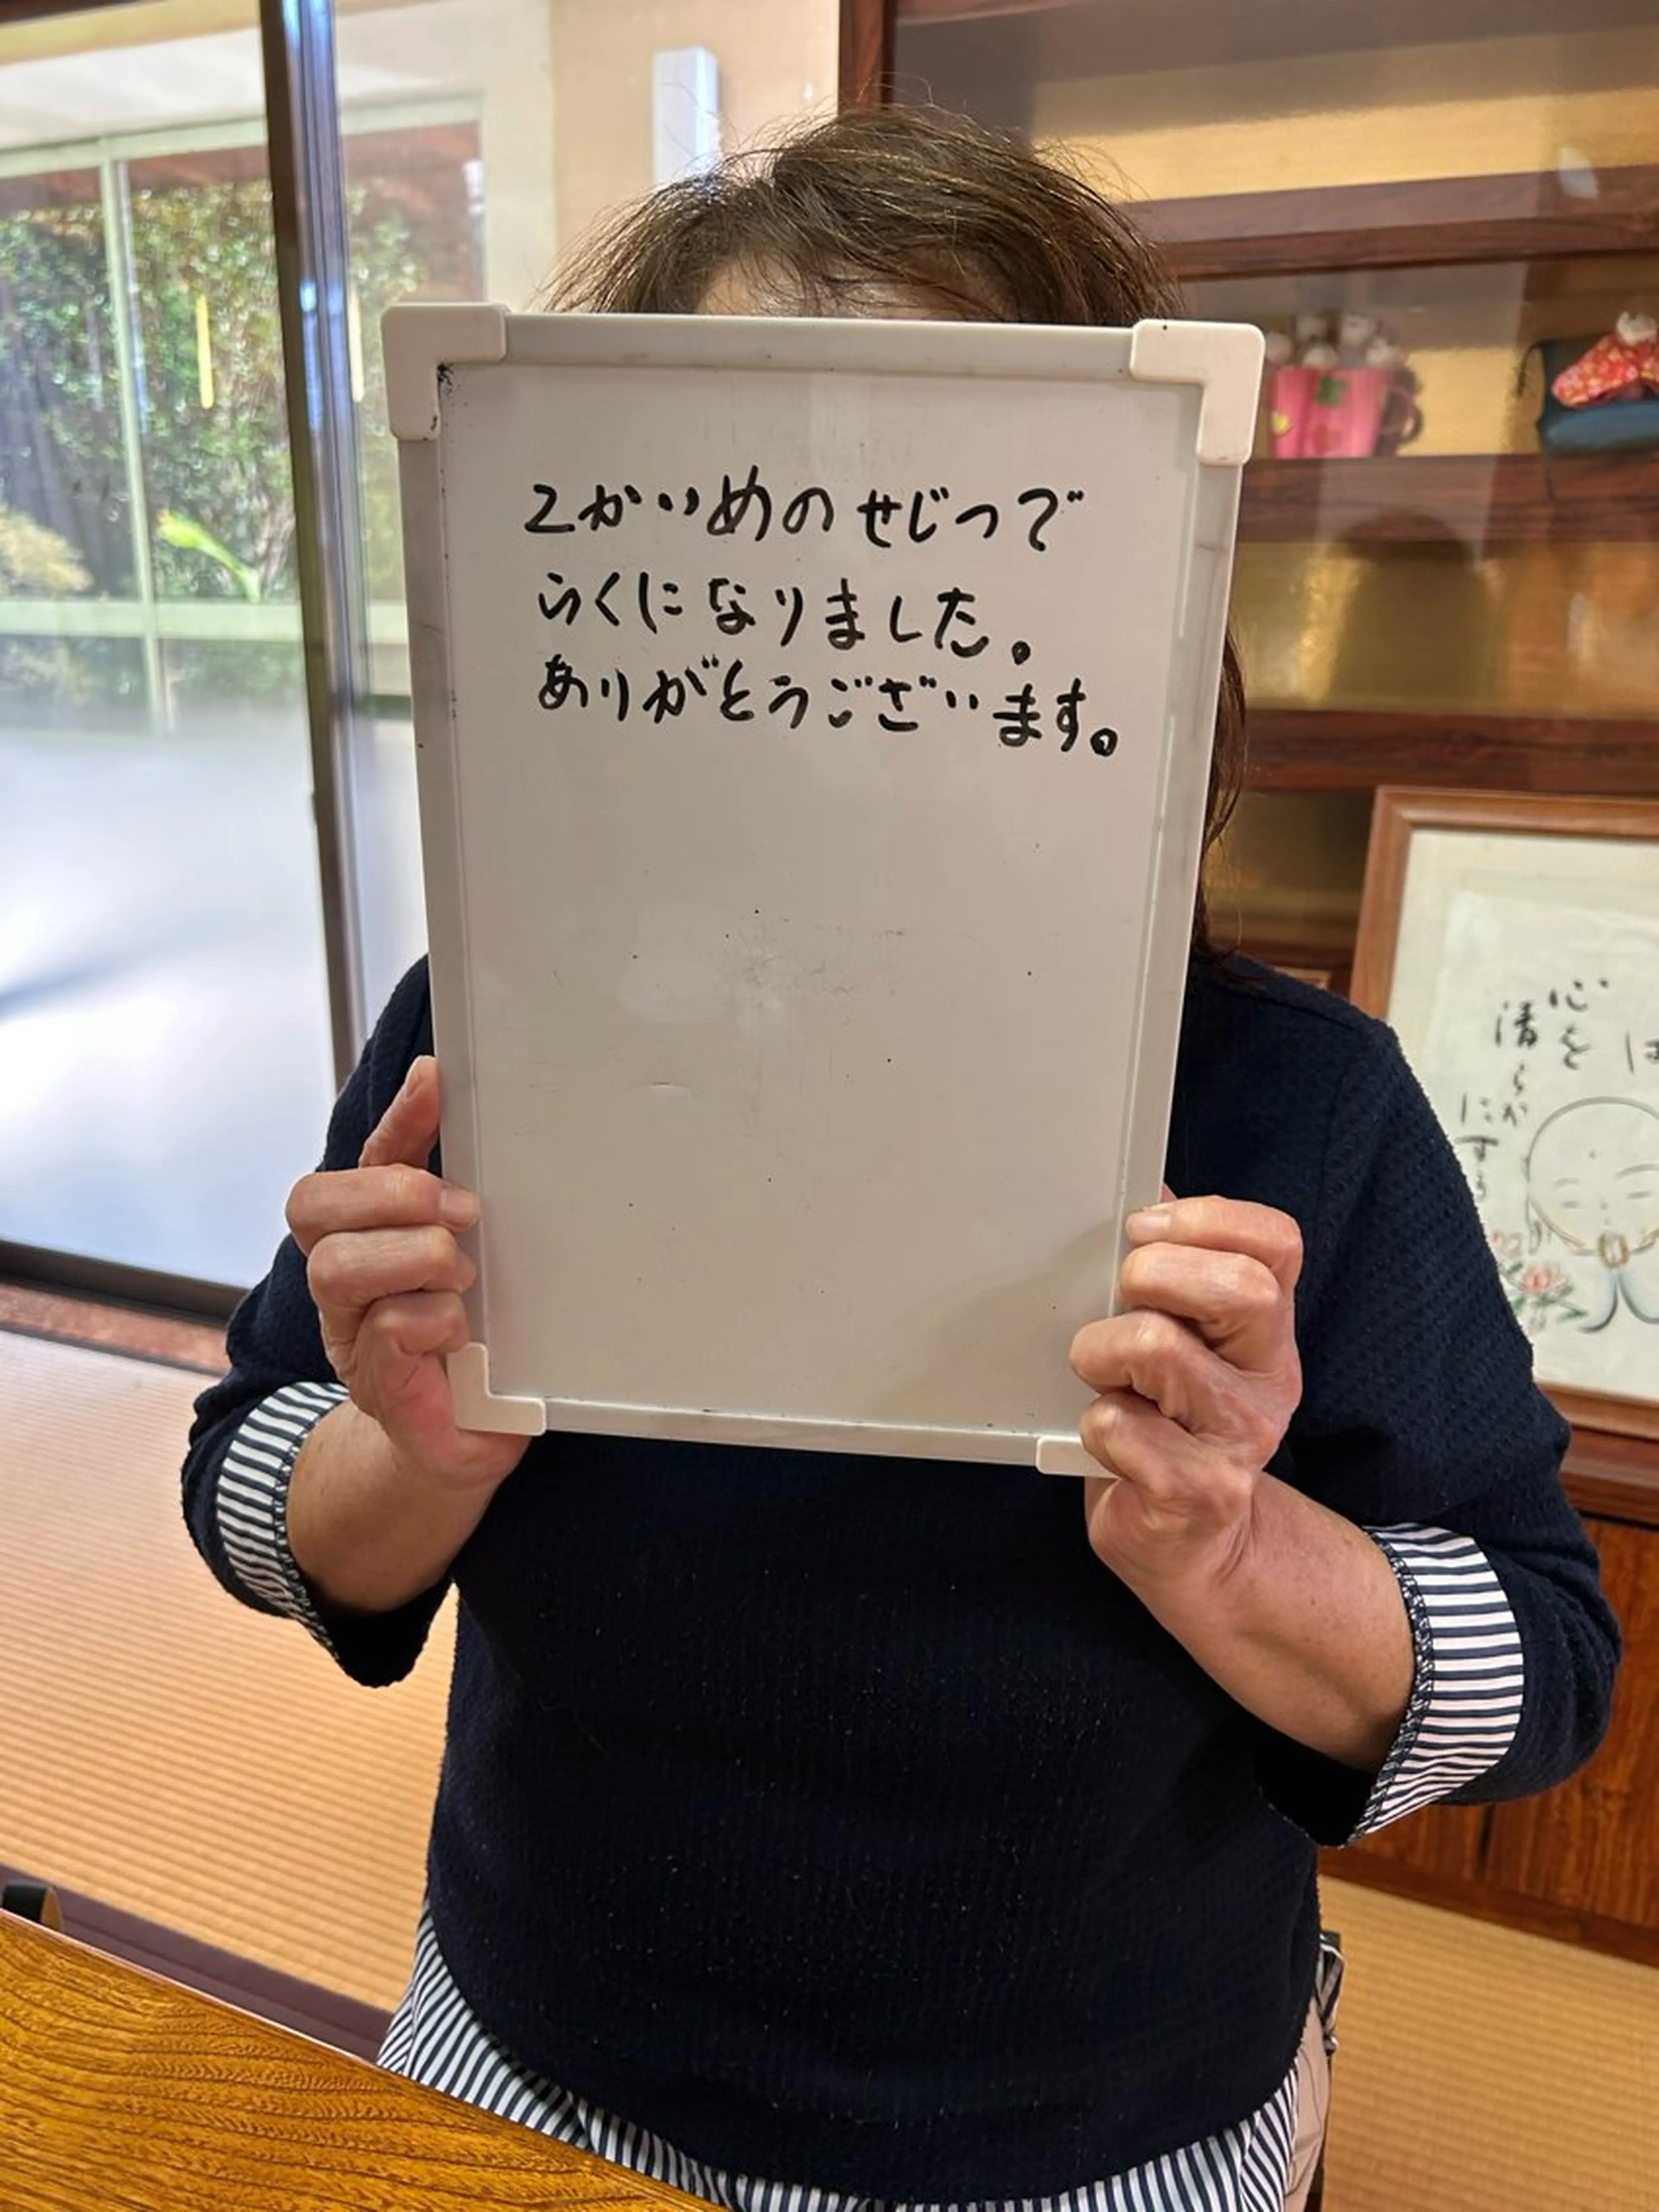 2かいめのせじつで
らくになりました。
ありがとうございます。
は
心を
清らか
にする